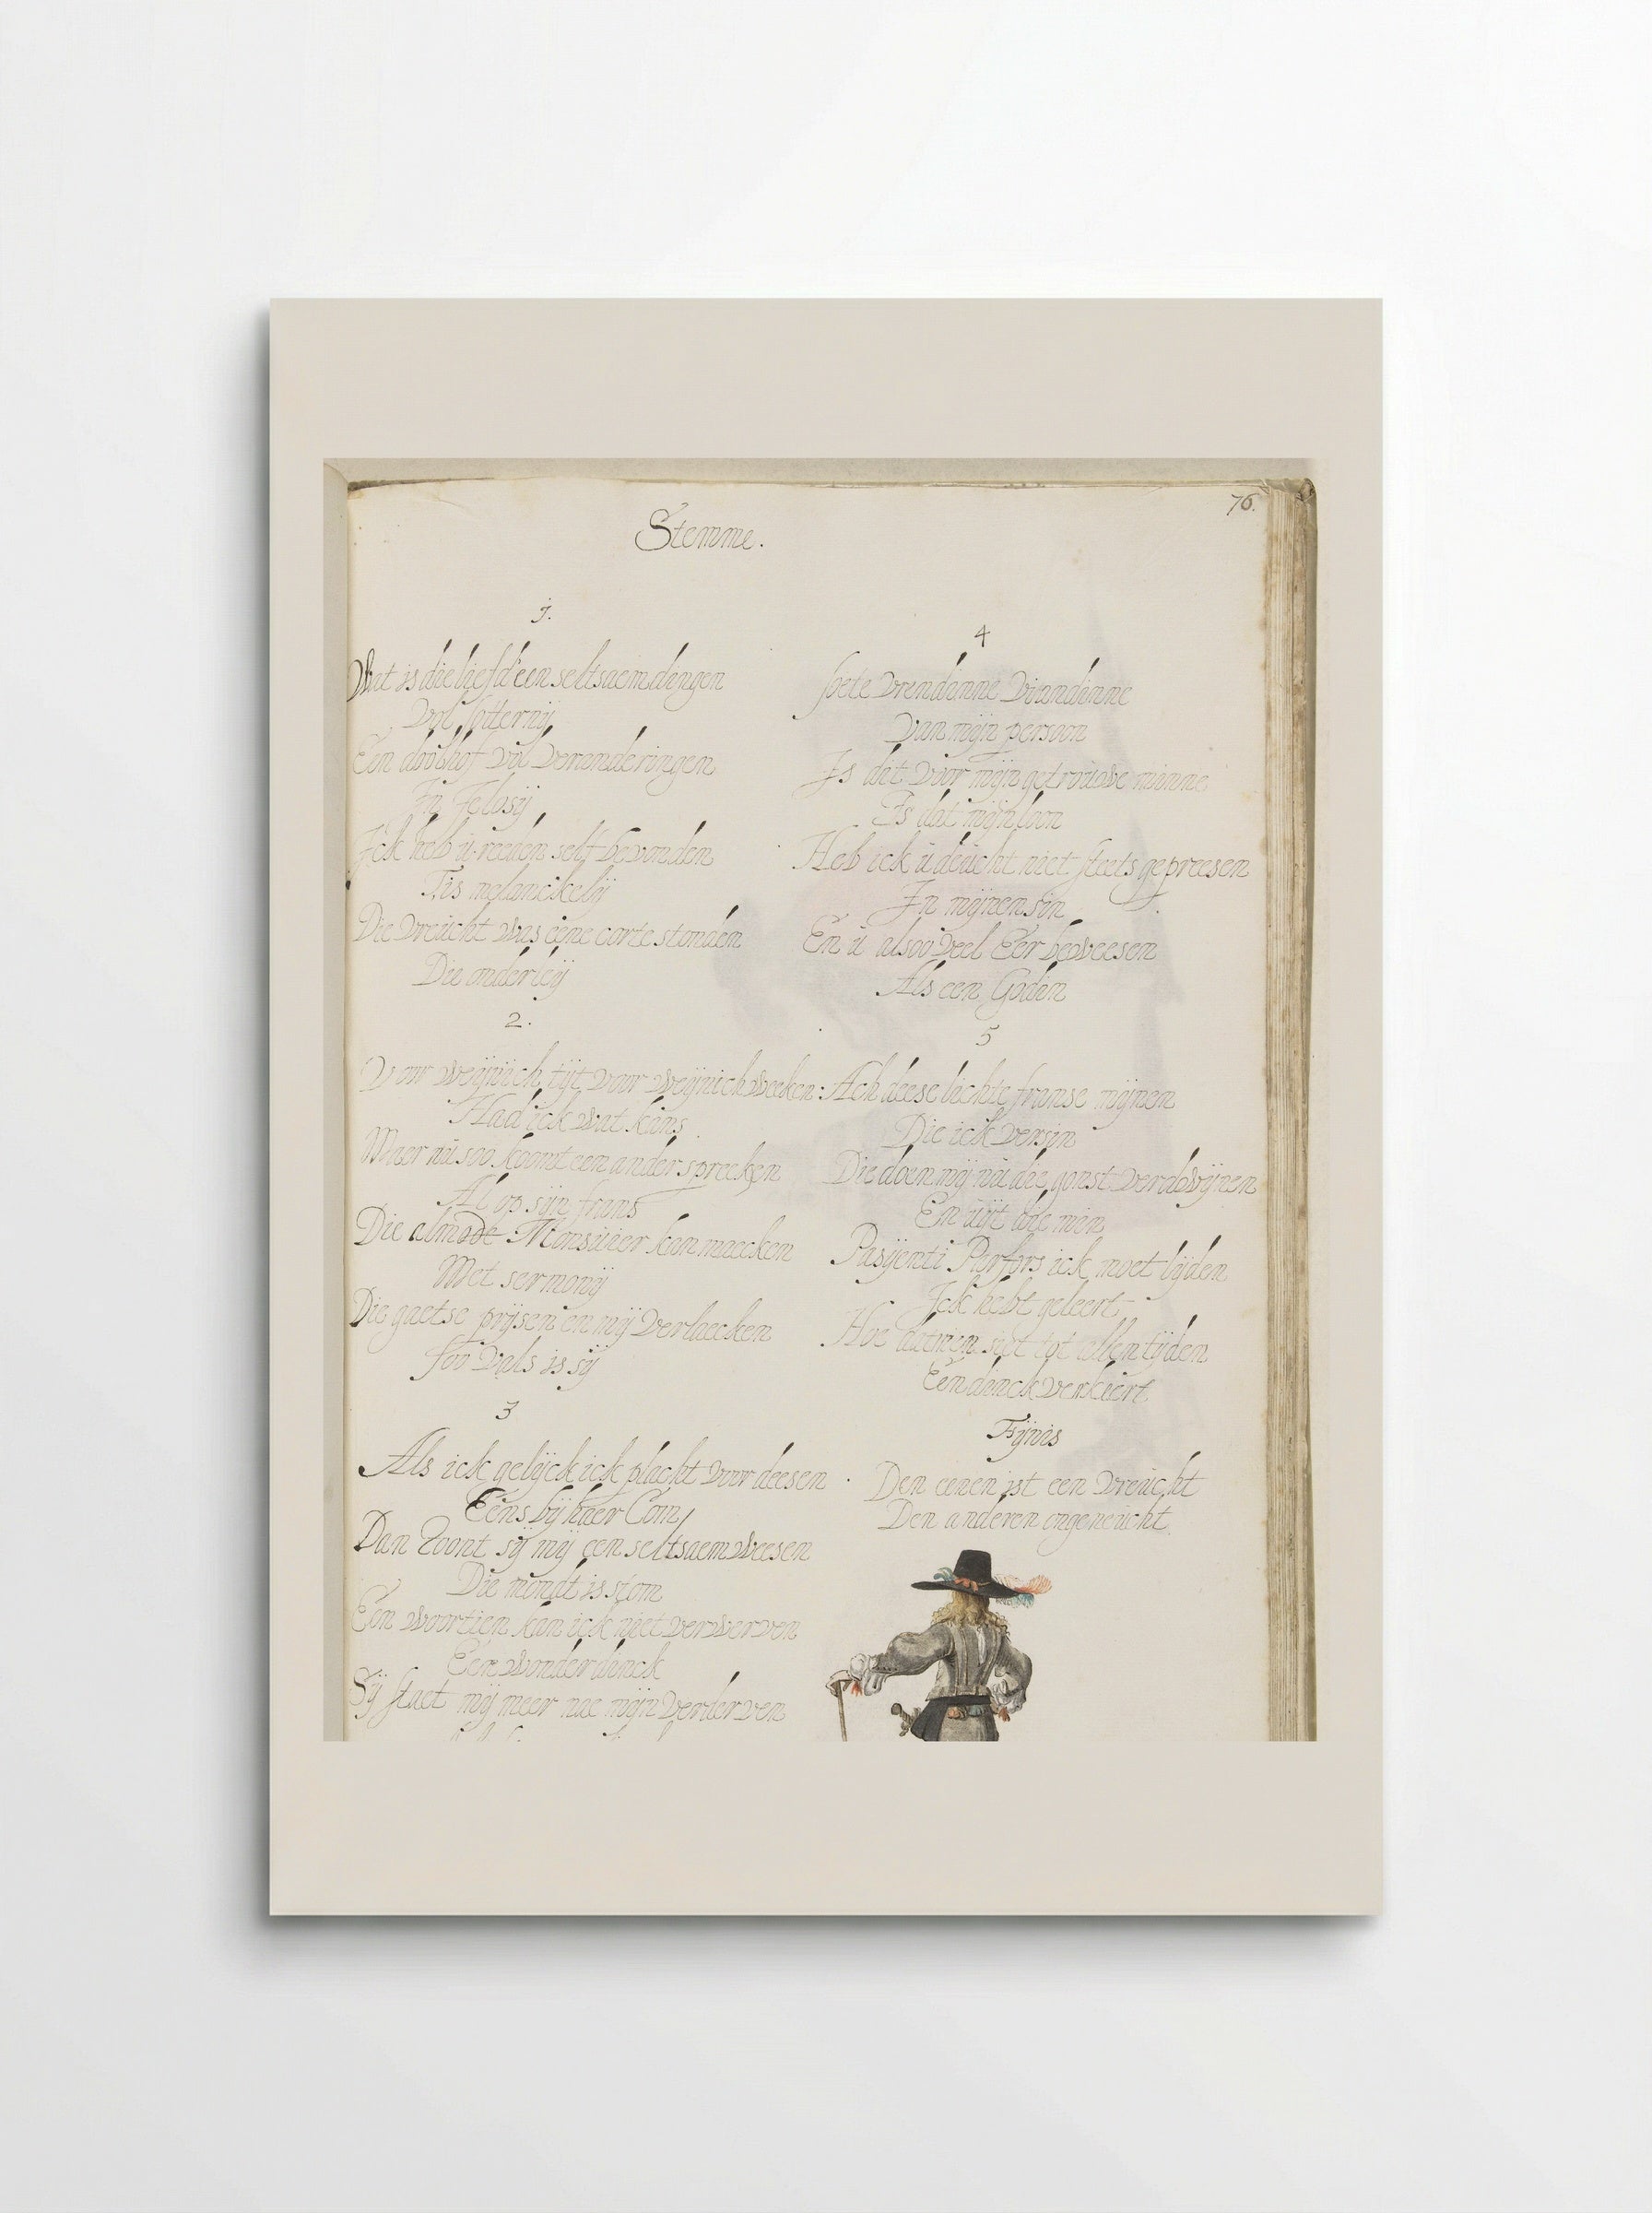 76.
Stemme.
1.
Wat is die liefd' een seltsaem dingen
Vol sotternij
Een doolhof vol veranderingen
In Jelosij
Ick heb u reeden self bevonden
Tis melanckelij
Die vreucht was eene corte stonden
Die anderleij
2.
Voor weijnich tijt voor weijnich weeken
Had ick wat kans
Maer nu soo koomt een ander spreeken
Al op sijn frans
Die almode Monsuier kan maecken
Met sermonij
Die gaetse prijsen en mij verlaecken
soo vals is sij
3
Als ick gelijck ick placht voor deesen
Eens bij haer Com
Dan toont sij mij een seltsaem weesen
Die mondt is stom
Een woortien kan ick niet verwerven
Een wonder dinck
Sij staet mij meer nae mijn verderven
4
soete vrindinne viandinne
Van mijn persoon
Is dit voor mijn getrouwe minne
Is dat mijn loon
Heb ick u deucht niet steets gepreesen
In mijnen sin
En u alsoo veel Eer beweesen
Als een Godin
5
Ach deese lichte franse mijnen
Die ick versin
Die doen mij nu die gonst verdwijnen
En uijt die min
Pasijenti Parfors ick moet lijden
Ick hebt geleert
Hoe datmen siet tot allen tijden
Een dinck verkeert
Fijnis
Den eenen ist een vreucht
Den anderen ongeneucht